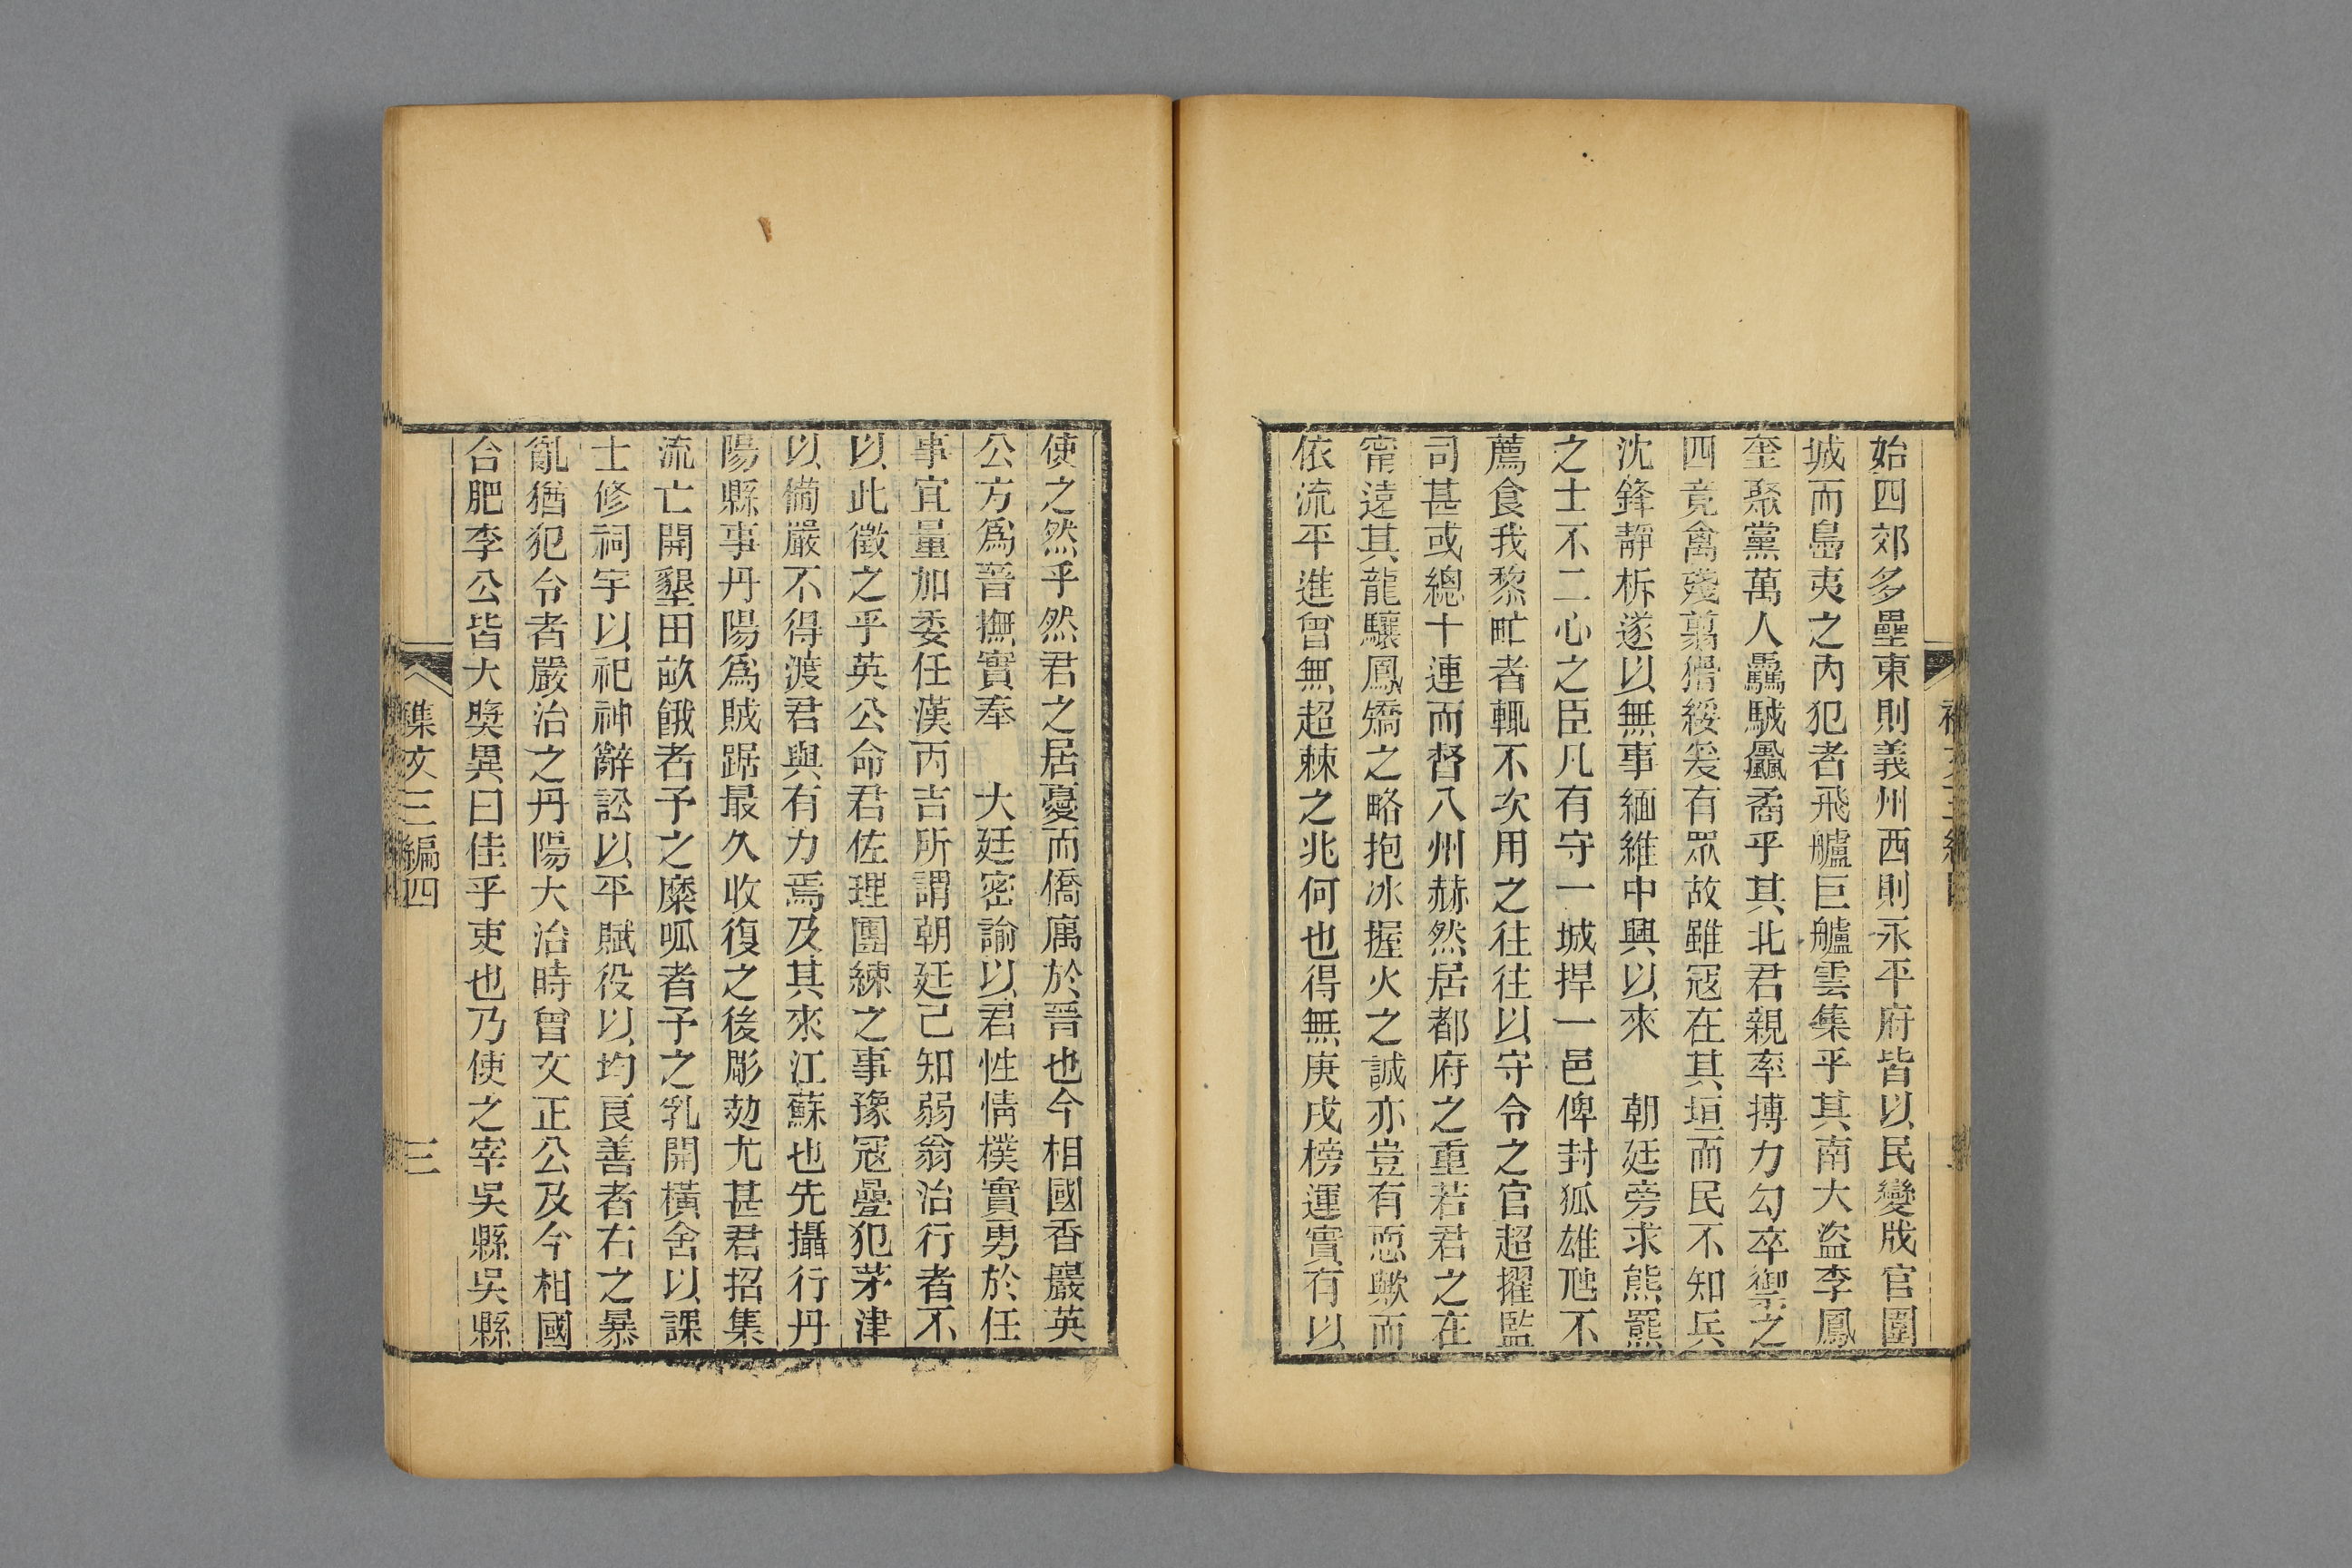 始四郊多壘東則義州西則永平府皆以民變戕官圍
城而島夷之內犯者飛艫巨艫雲集乎其南大盜李鳳
奎聚黨萬人驫駥飍矞乎其北君親率搏力勾卒禦之
四竟禽殘翦猾綏爰有眾故雖寇在其垣而民不知兵
沈鋒靜柝遂以無事緬維中興以來　朝廷旁求熊羆
之士不二心之臣凡有守一城捍一邑俾封狐雄虺不
薦食我黎甿者輒不次用之往往以守令之官超擢監
司甚或總十連而督八州赫然居都府之重若君之在
甯遠其龍驤鳳矯之略抱冰握火之誠亦豈有恧歟而
依流平進曾無超棘之兆何也得無庚戌榜運實有以
使之然乎然君之居憂而僑寓於晉也今相國香巖英
公方爲晉撫實奉　大廷密諭以君性情樸實勇於任
事宜量加委任漢丙吉所謂朝廷已知弱翁治行者不
以此徵之乎英公命君佐理團練之事豫寇疊犯茅津
以僃嚴不得渡君與有力焉及其來江蘇也先攝行丹
陽縣事丹陽爲賊踞最久收復之後彫劫尤甚君招集
流亡開墾田畝餓者予之糜呱者予之乳開橫舍以課
士修祠宇以祀神辭訟以平賦役以均良善者右之暴
亂猶犯令者嚴治之丹陽大治時曾文正公及今相國
合肥李公皆大獎異曰佳乎吏也乃使之宰吳縣吳縣
集文三編四
三